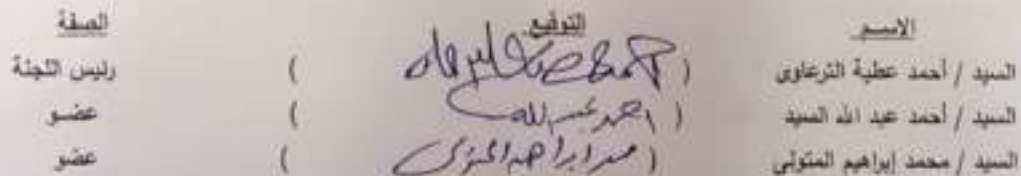 الاسم التوقيع الصفة
السيد / أحمد عطية الترغاوى ( ) رئيس اللجنة
السيد / أحمد عبد الله السيد ( أحمد عبد الله ) عضو
السيد / محمد إبراهيم المتولى ( محمد ابراهيم المتولى ) عضو